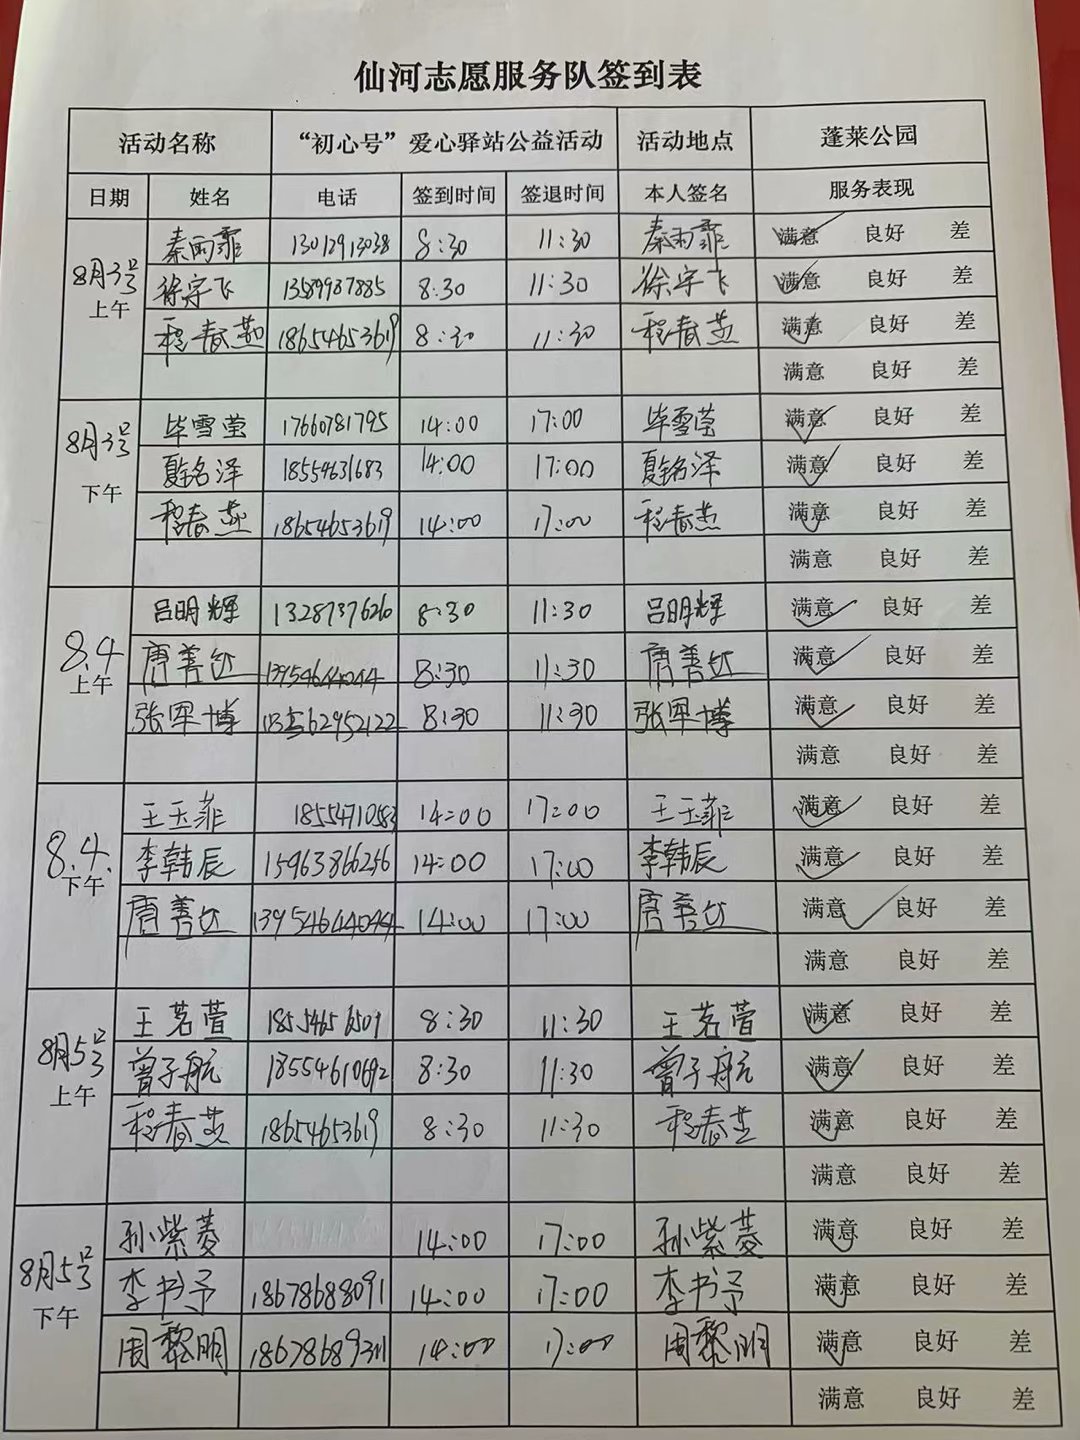 仙河志愿服务队签到表
活动名称 “初心号”爱心驿站公益活动 活动地点 蓬莱公园
日期 姓名 电话 签到时间 签退时间 本人签名 服务表现
8月3号 上午 秦雨霏 13012913038 8:30 11:30 秦雨霏 满意 良好 差
徐宇飞 13589937885 8:30 11:30 徐宇飞 满意 良好 差
程春燕 18654653619 8:30 11:30 程春燕 满意 良好 差
满意 良好 差
8月3号 下午 毕雪莹 17660781795 14:00 17:00 毕雪莹 满意 良好 差
夏铭泽 18554631683 14:00 17:00 夏铭泽 满意 良好 差
程春燕 18654653619 14:00 17:00 程春燕 满意 良好 差
满意 良好 差
8.4 上午 吕明辉 13287376260 8:30 11:30 吕明辉 满意 良好 差
善 13954644044 8:30 11:30 善 满意 良好 差
张军博 8:30 11:30 张军博 满意 良好 差
满意 良好 差
8.4. 下午 王玉菲 18554710583 14:00 17:00 王玉菲 满意 良好 差
李韩辰 15963866256 14:00 17:00 李韩辰 满意 良好 差
善 13954644044 14:00 17:00 善 满意 良好 差
满意 良好 差
8月5号 上午 王茗萱 18554656509 8:30 11:30 王茗萱 满意 良好 差
曾子航 18554610692 8:30 11:30 曾子航 满意 良好 差
程春燕 18654653619 8:30 11:30 程春燕 满意 良好 差
满意 良好 差
8月5号 下午 孙紫菱 14:00 17:00 孙紫菱 满意 良好 差
李书予 18678688091 14:00 17:00 李书予 满意 良好 差
周黎明 18678689311 14:00 17:00 周黎明 满意 良好 差
满意 良好 差